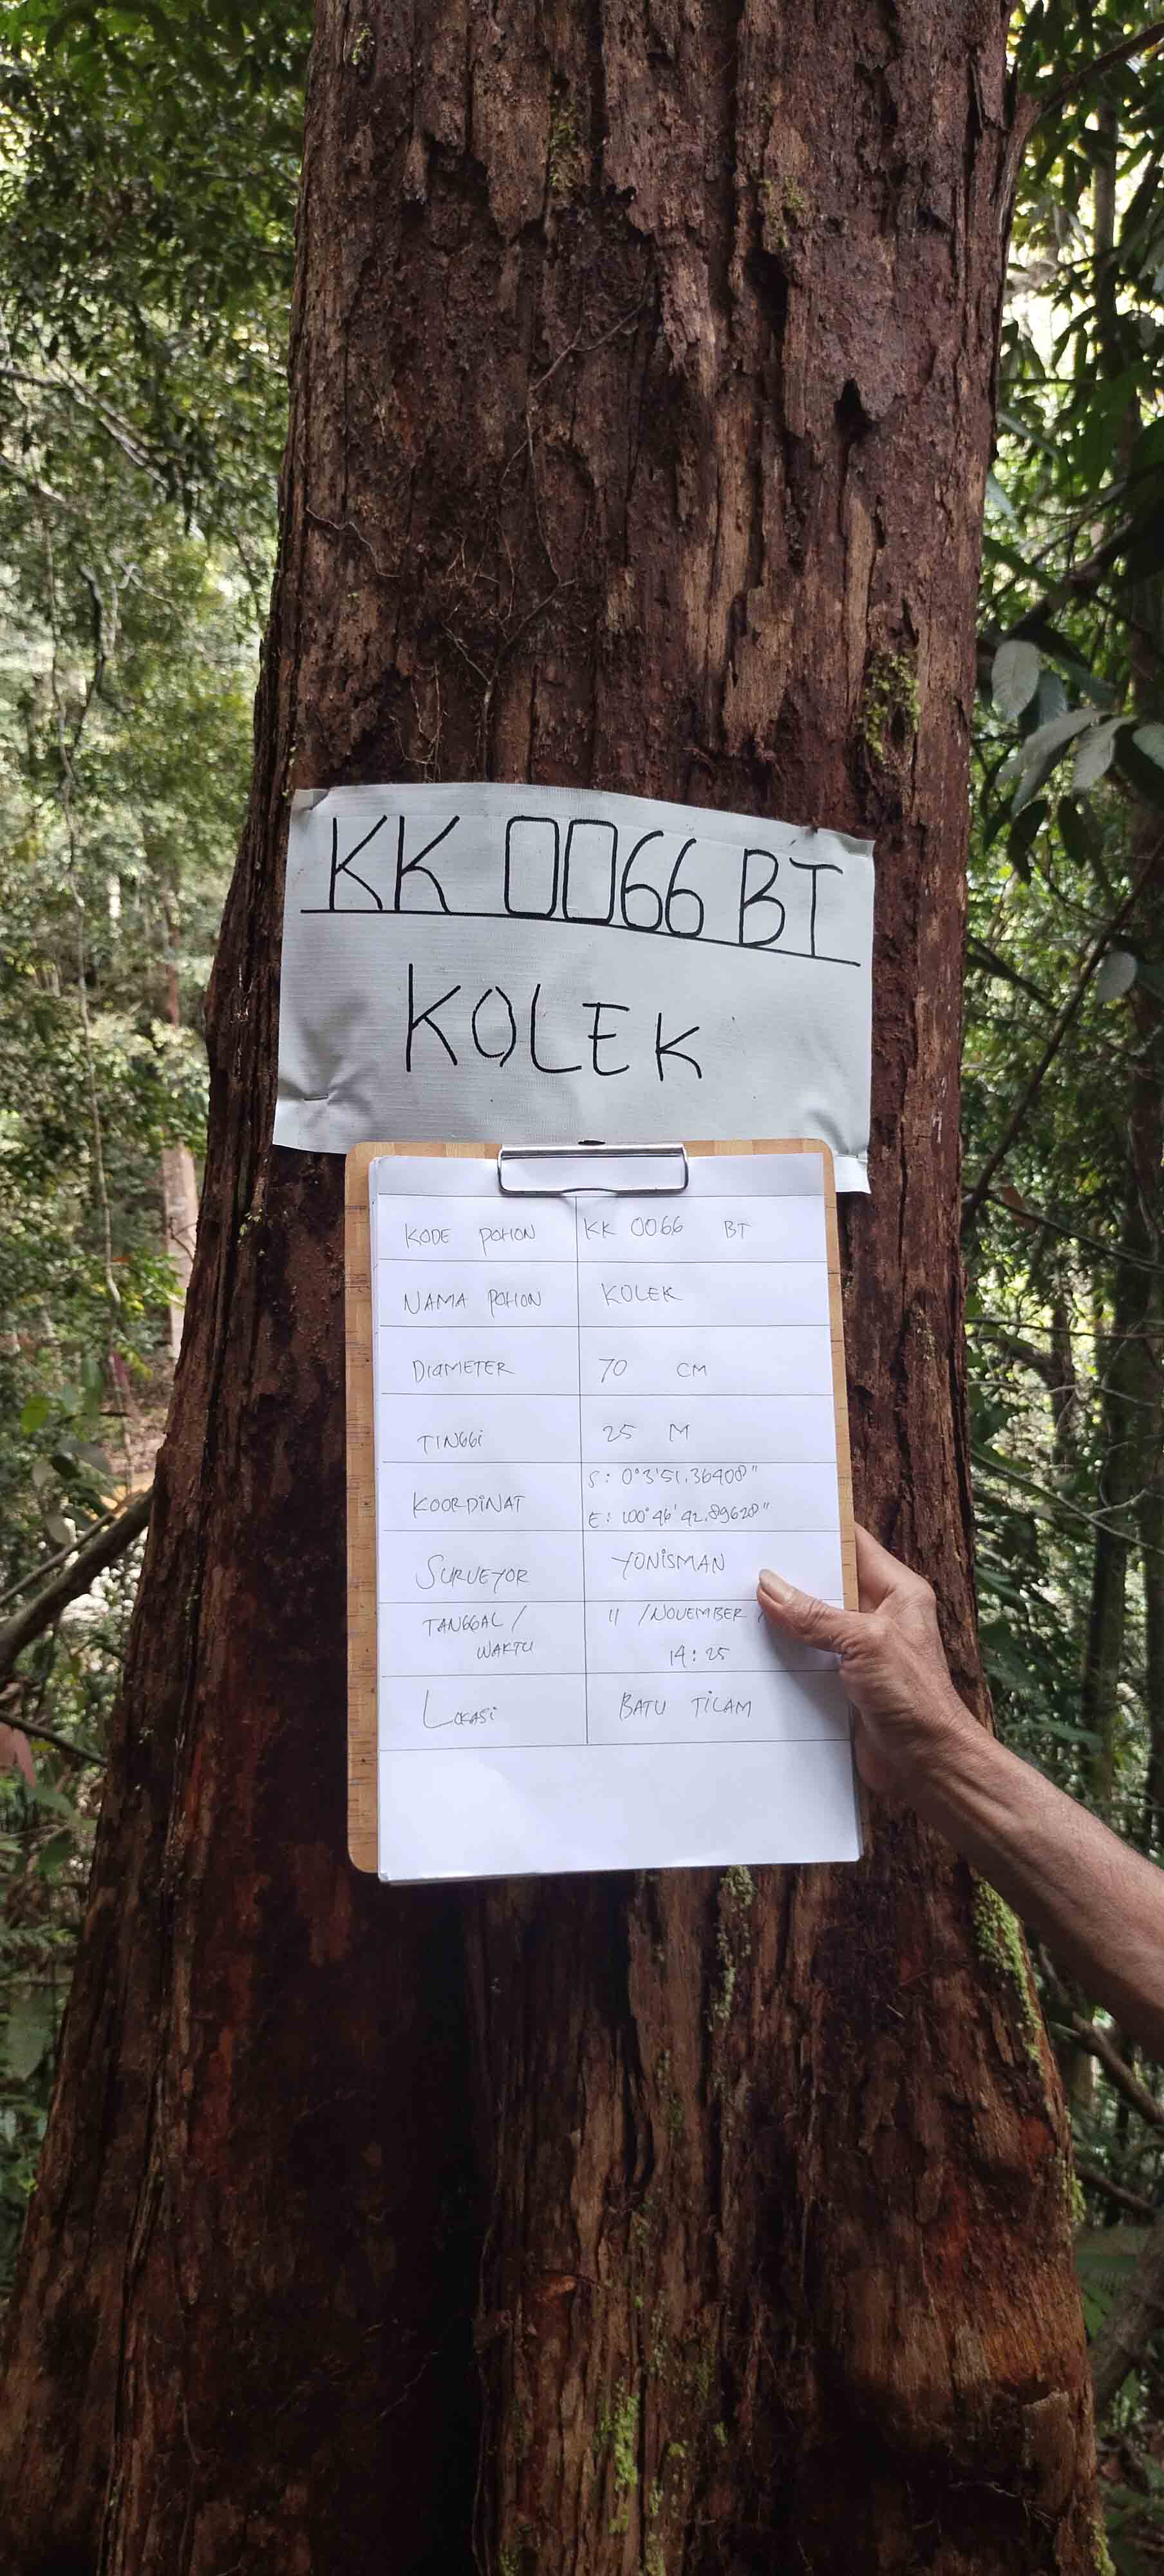 KK 0066 BT
KOLEK
KODE POHON KK 0066 BT
NAMA POHON KOLEK
DIAMETER 70 CM
TINGGI 25 M
KOORDINAT S: 0°3'51.36408"
E: 100°46'42.89628"
SURVEYOR YONISMAN
TANGGAL / 11 / NOVEMBER /
WAKTU 14:25
LOKASI BATU TILAM